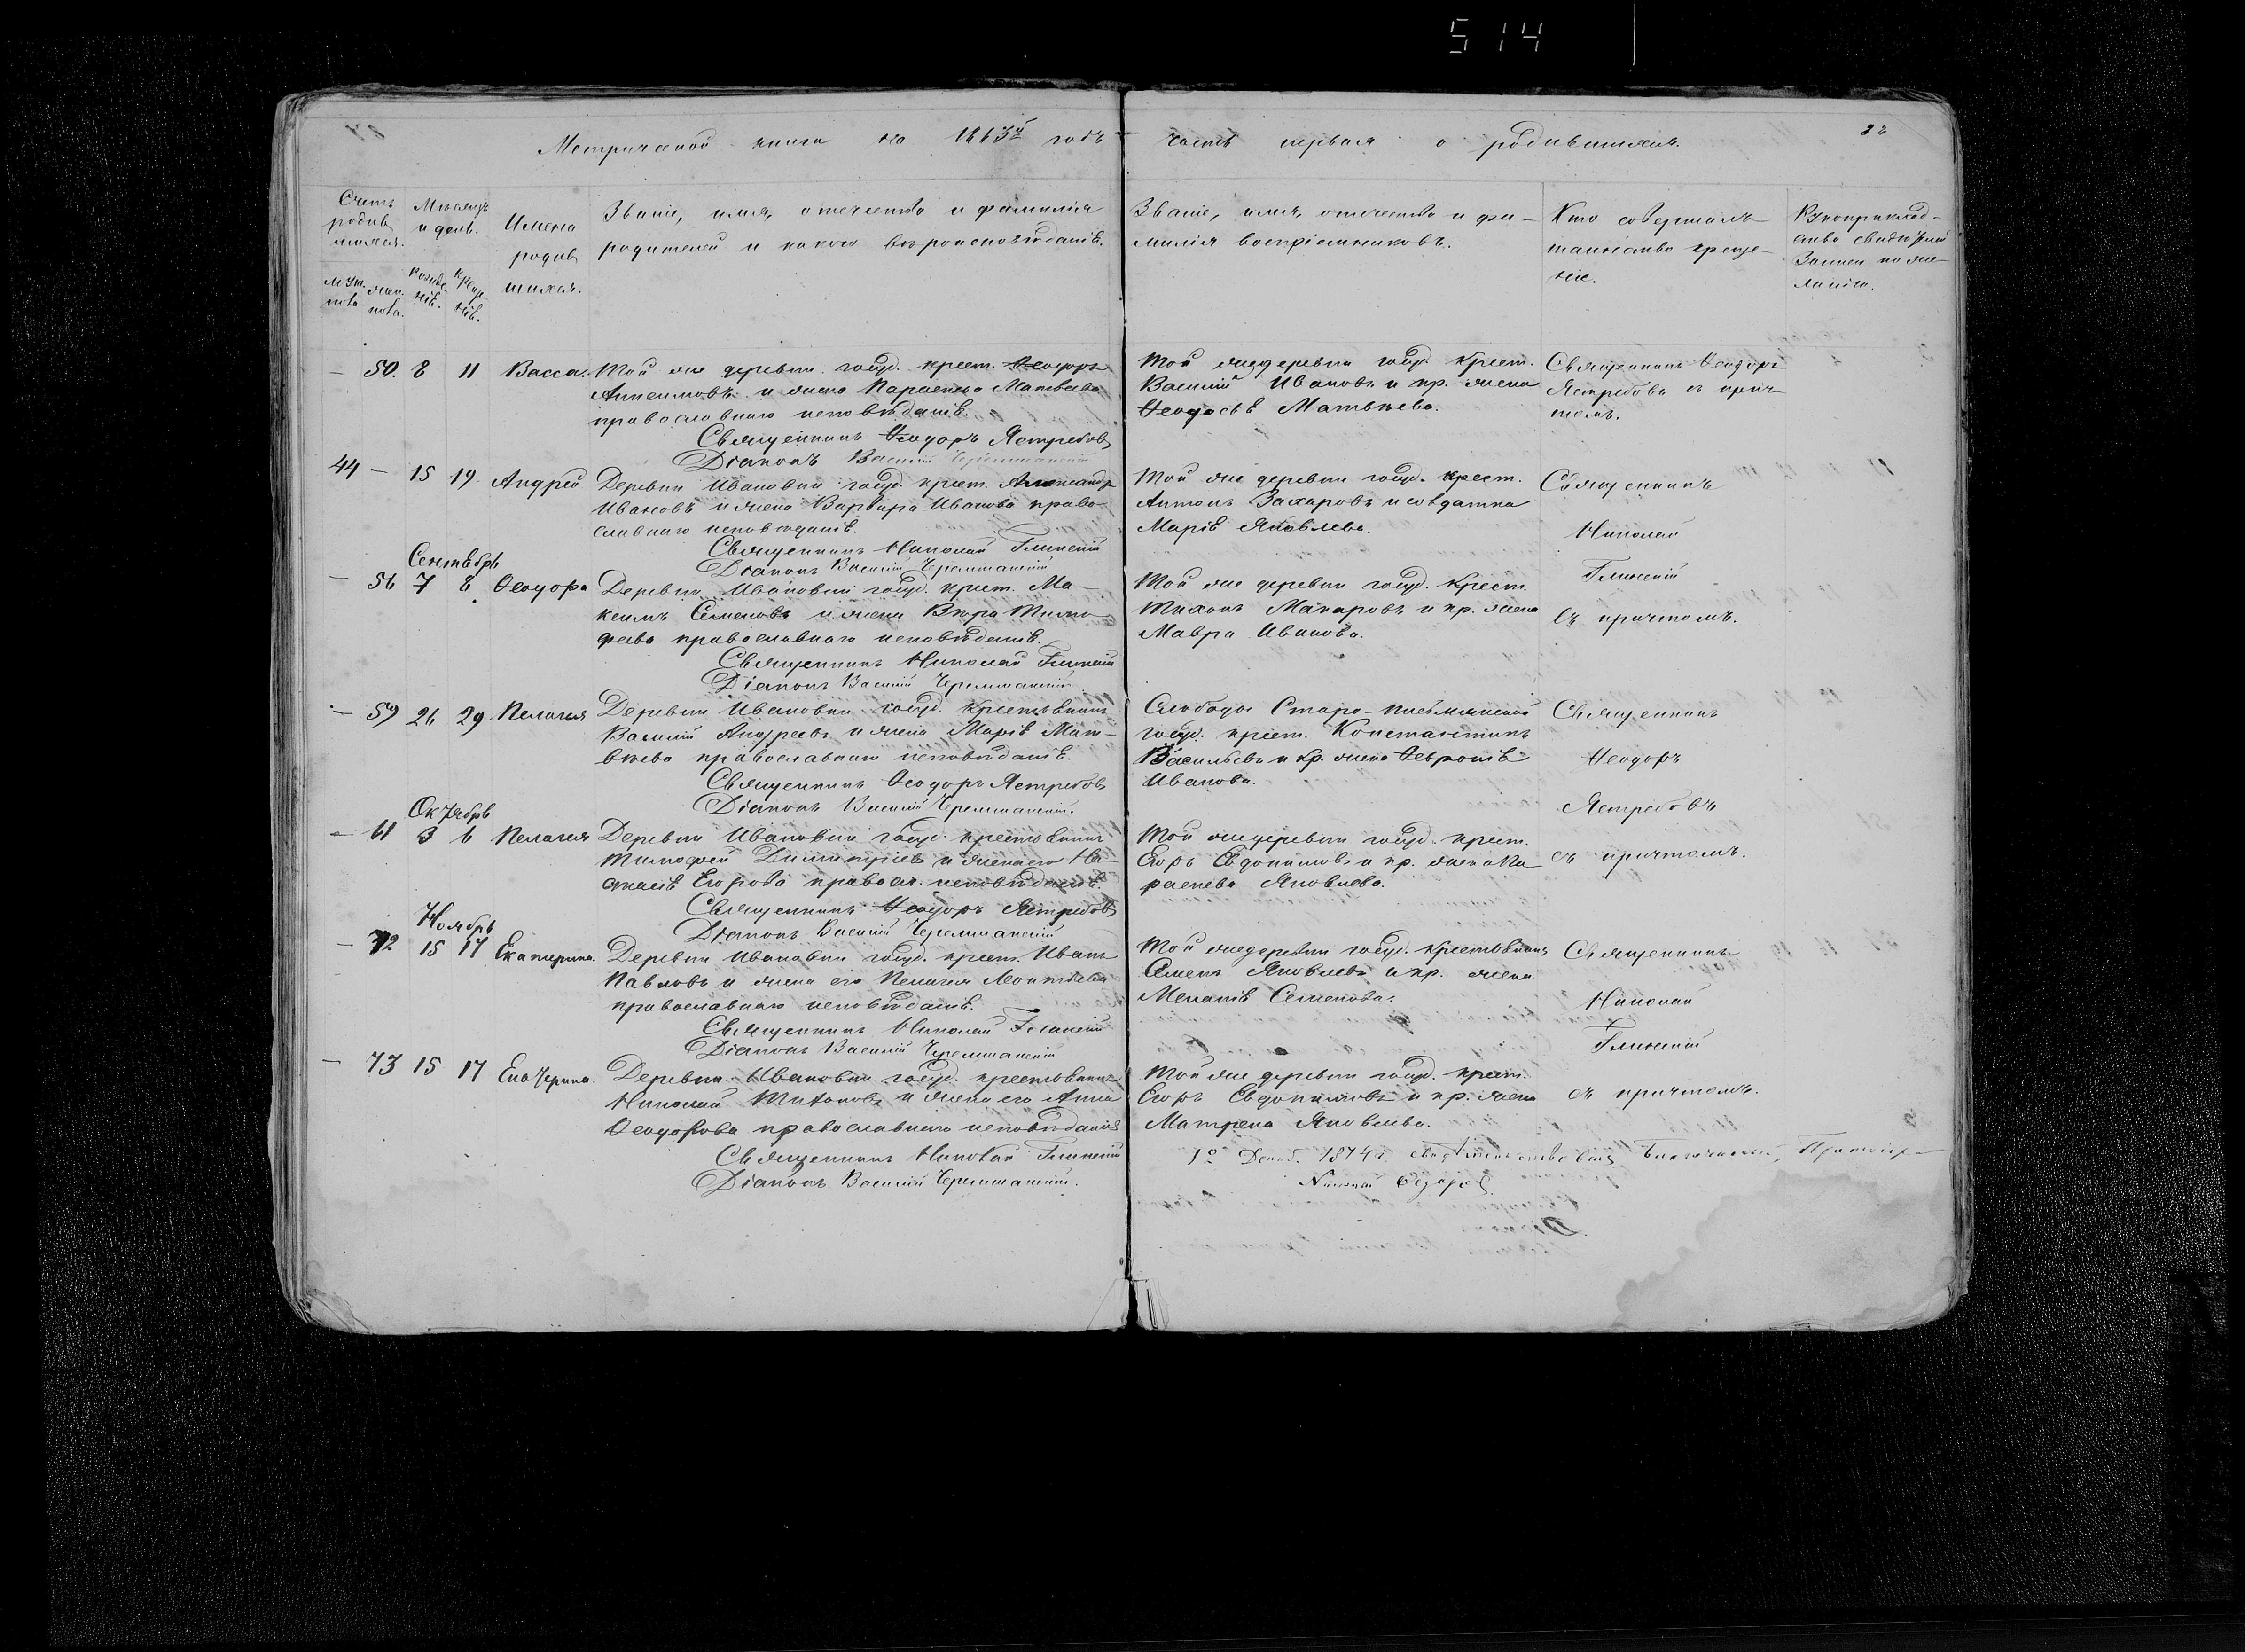 514
Метрической книги на 1863й годъ часть первая о родившихся.
Счетъ родившихся.
Мѣсяцъ и день.
Имена родившихся.
Званіе, имя, отчество и фамилія
родителей и какого вѣроисповѣданія.
Званіе, имя, отчество и фа-
милія воспріемниковъ.
Кто совершалъ
таинство креще-
нія.
Рукоприклад-
ство свидѣтелей
записи по же-
ланію.
муж. пола
жен. пола.
рожде-
нія.
кре-
нія.
— 50. 8 11 Васса.
Той же деревни госуд. крест. Ѳеодоръ
Анисимовъ и жена Параскева Матвѣева
православнаго исповѣданія.
Священникъ Ѳеодоръ Ястребовъ
Діаконъ Василій Черемшанскій
Той же деревни госуд. крест.
Василій Ивановъ и кр. жена
Ѳеодосія Матвѣева.
Священникъ Ѳеодоръ
Ястребовъ съ прич-
томъ.
44 — 15 19 Андрей
Деревни Ивановки госуд. крест. Александръ
Ивановъ и жена Варвара Иванова право-
славнаго исповѣданія.
Священникъ Николай Глинскій
Діаконъ Василій Черемшанскій
Той же деревни госуд. крест.
Антонъ Захаровъ и солдатка
Марія Яковлева.
Священникъ
Николай
Глинскій
съ причтомъ.
Сентябрь
— 56 7 8 Ѳеодора
Деревни Ивановки госуд. крест. Ма-
ксимъ Семеновъ и жена Вѣра Тимо-
феева православнаго исповѣданія.
Священникъ Николай Глинскій
Діаконъ Василій Черемшанскій
Той же деревни госуд. крест.
Тихонъ Макаровъ и кр. жена
Мавра Иванова.
— 59 26 29 Пелагея
Деревни Ивановки госуд. крестьянинъ
Василій Андреевъ и жена Марія Мат-
вѣева православнаго исповѣданія.
Священникъ Ѳеодоръ Ястребовъ
Діаконъ Василій Черемшанскій.
Слободы Старо-Письмянской
госуд. крест. Константинъ
Васильевъ и кр. жена Ѳевронія
Иванова.
Священникъ
Ѳеодоръ
Ястребовъ
съ причтомъ.
Октябрь
— 61 3 6 Пелагея
Деревни Ивановки госуд. крестьянинъ
Тимофей Димитріевъ и жена его На-
стасія Егорова правосл. исповѣданія.
Священникъ Ѳеодоръ Ястребовъ
Діаконъ Василій Черемшанскій
Той же деревни госуд. крест.
Егоръ Евдокимовъ и кр. жена Па-
раскева Яковлева.
Ноябрь
— 72 15 17 Екатерина.
Деревни Ивановки госуд. крест. Иванъ
Павловъ и жена его Пелагея Леонтьева
православнаго исповѣданія.
Священникъ Николай Глинскій
Діаконъ Василій Черемшанскій
Той же деревни госуд. крестьянинъ
Семенъ Яковлевъ и кр. жена
Меланія Семенова.
Священникъ
Николай
Глинскій
съ причтомъ.
— 73 15 17 Екатерина.
Деревни Ивановки госуд. крестьянинъ
Николай Тихоновъ и жена его Анна
Ѳеодорова православнаго исповѣданія
Священникъ Николай Глинскій
Діаконъ Василій Черемшанскій.
Той же деревни госуд. крест.
Егоръ Евдокимовъ и кр. жена
Матрена Яковлева.
1874 г. свидѣтельствовалъ Благочинный, Протоіер-